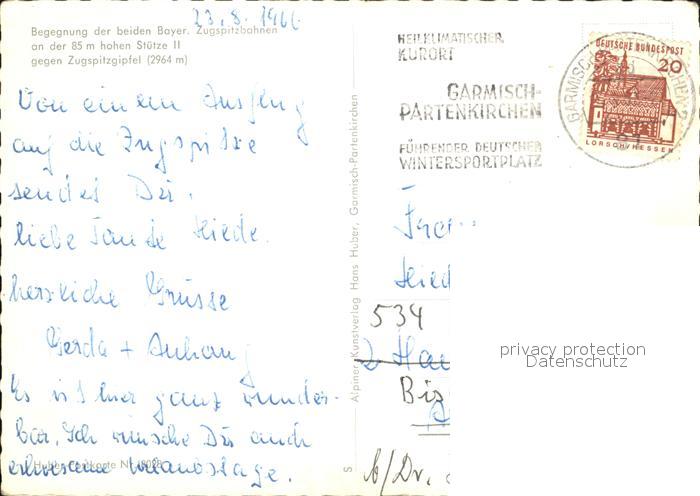 23. 8. 1966
Begegnung der beiden Bayer. Zugspitzbahnen
an der 85 m hohen Stütze II
gegen Zugspitzgipfel (2964 m)
Von einem Ausflug
auf die Zugspitze
sendet Dir,
liebe Tante Hiede.
herzliche Grüsse
Gerda + Anhang
Es ist hier ganz wunder-
bar. Ich wünsche Dir auch
erholsame Urlaubstage.
Huber-Postkarte Nr.
Alpiner Kunstverlag Hans Huber, Garmisch-Partenkirchen
S
HEILKLIMATISCHER
KURORT
GARMISCH-
PARTENKIRCHEN
FÜHRENDER DEUTSCHER
WINTERSPORTPLATZ
GARMISCH-PARTENKIRCHEN 2
DEUTSCHE BUNDESPOST
20
LORSCH/HESSEN
534
Bis
b/Dr.
privacy protection
Datenschutz